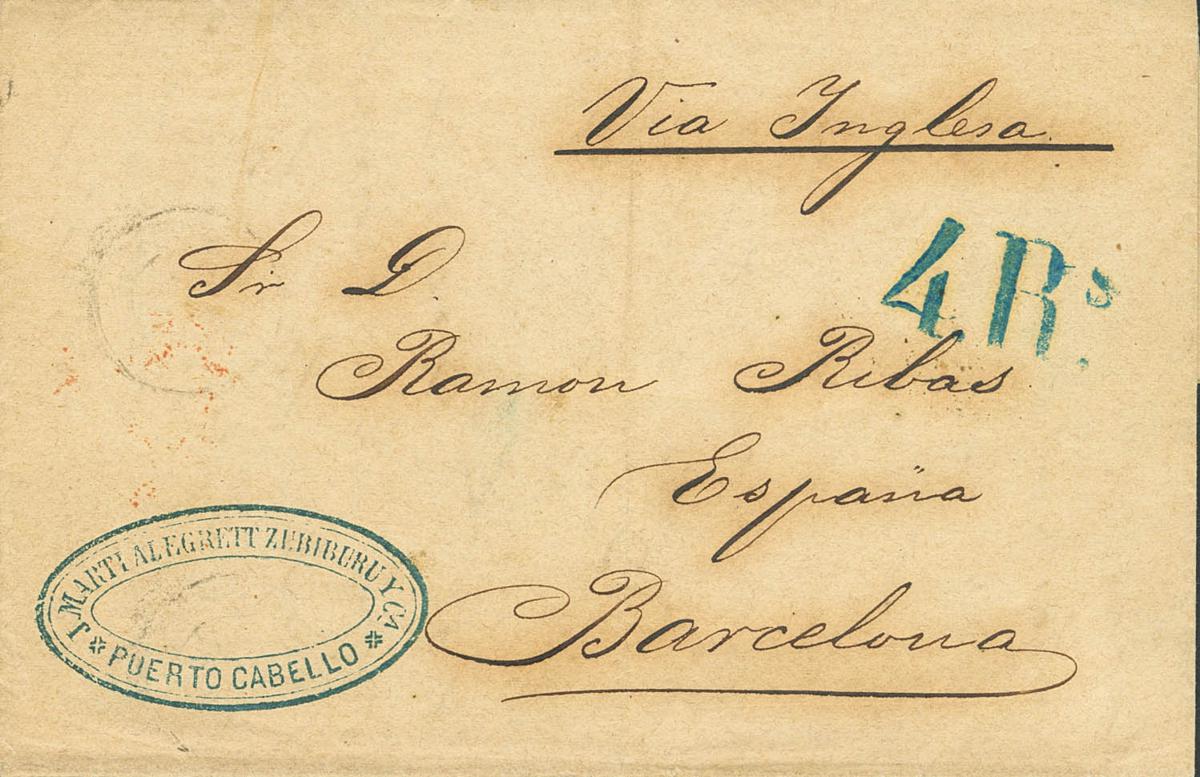 Via Inglesa.
4 Rs.
Sr D.
Ramon Ribas
España
Barcelona
J. MARTI ALEGRETT ZUBIBURU Y CA
PUERTO CABELLO